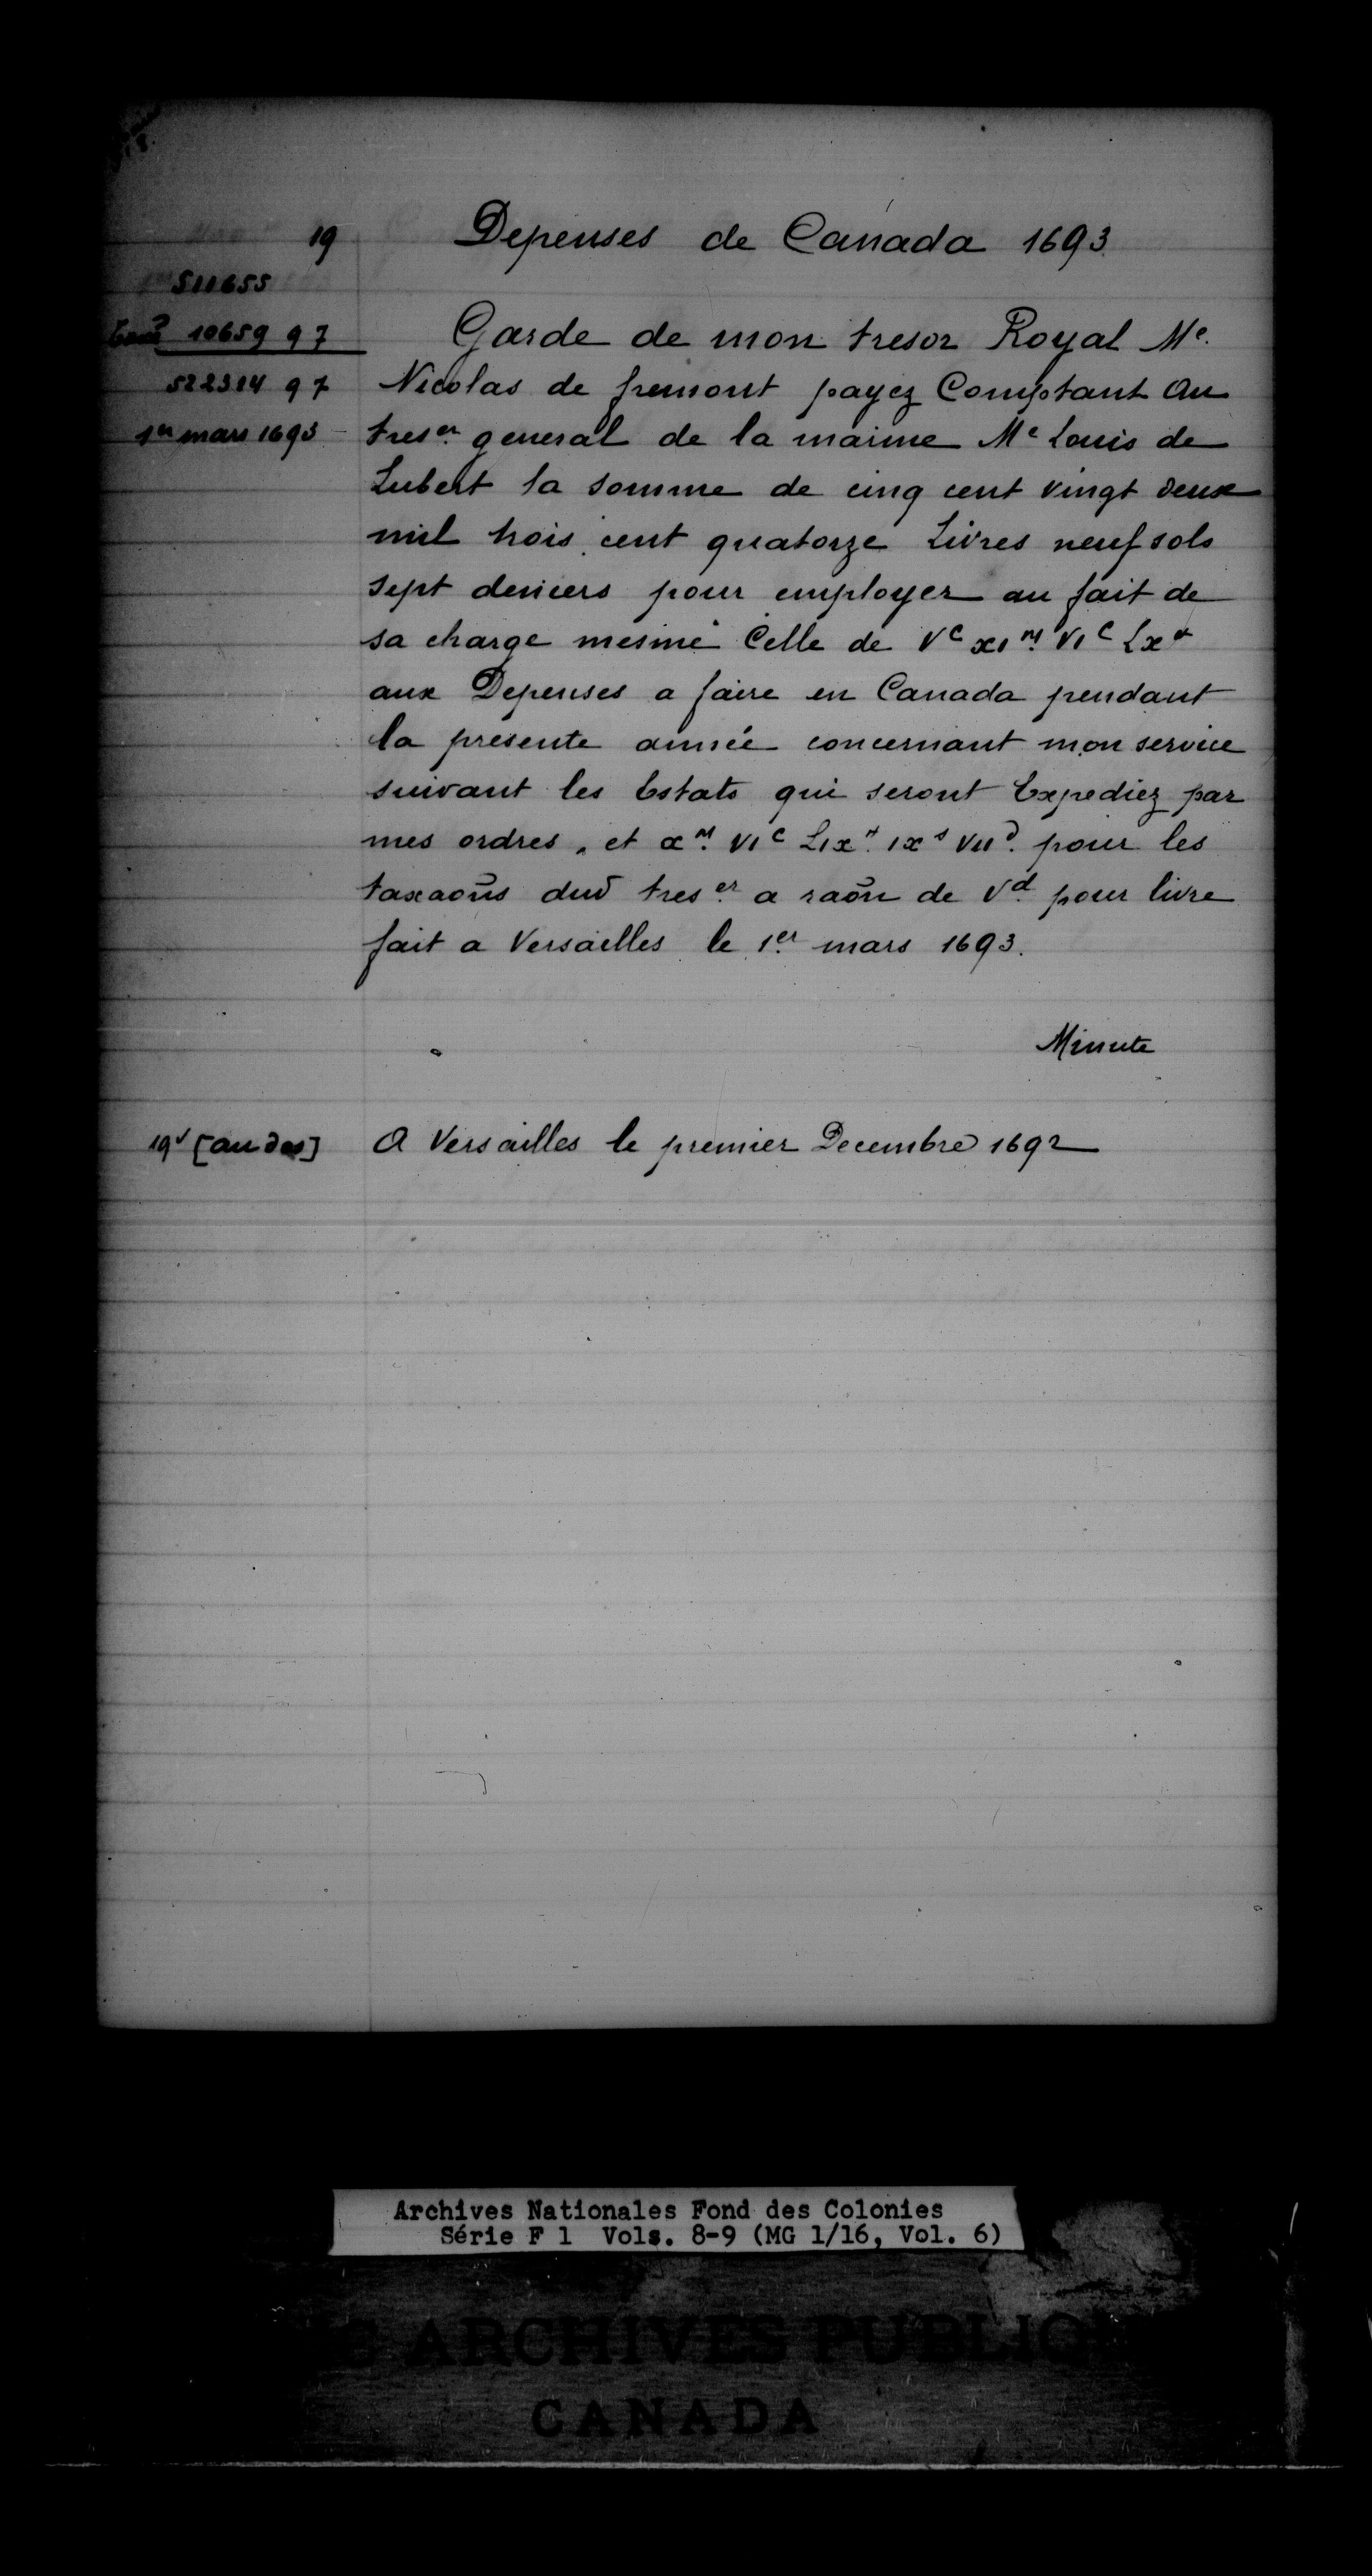 19
Depenses de Canada 1693
511655
10659 9 7
522314 9 7
1er mars 1693
Garde de mon tresor Royal Me.
Nicolas de fremont payez Comptant au
treser general de la marine Me Louis de
Lubert la somme de cinq cent vingt deux
mil trois cent quatorze Livres neuf sols
sept deniers pour employer au fait de
sa charge mesme Celle de Vc xim. VIc Lx
aux Depenses a faire en Canada pendant
la presente année concernant mon service
suivant les Estats qui seront Expediez par
mes ordres, et xm. VIc Lix. ixs VIId. pour les
taxaõns dud treser. a raõn de Vd. pour livre
fait a Versailles le 1er mars 1693.
Minute
19v [au dos]
A Versailles le premier Decembre 1692
Archives Nationales Fond des Colonies
Série F 1 Vols. 8-9 (MG 1/16, Vol. 6)
ARCHIVES PUBLIQ
CANADA